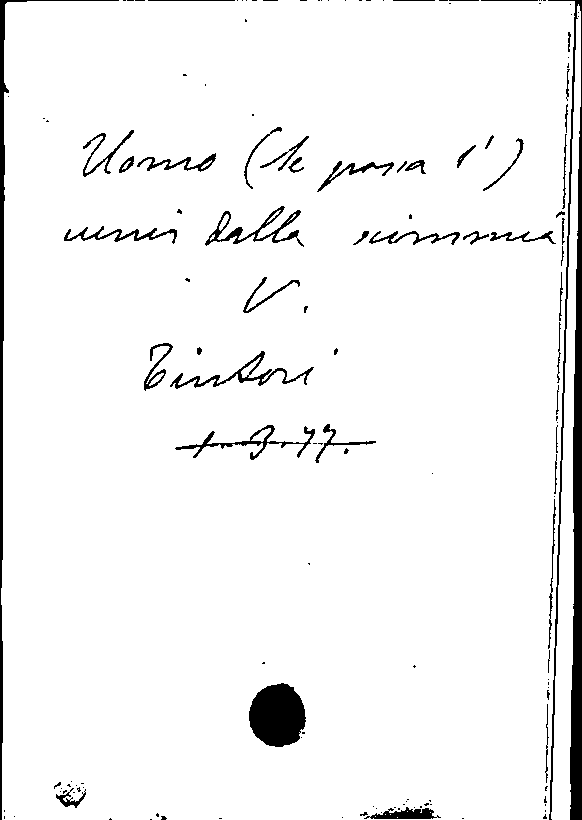 Uomo (se possa l')
venir dalla scimmia
V.
Tintori
1.3.77.